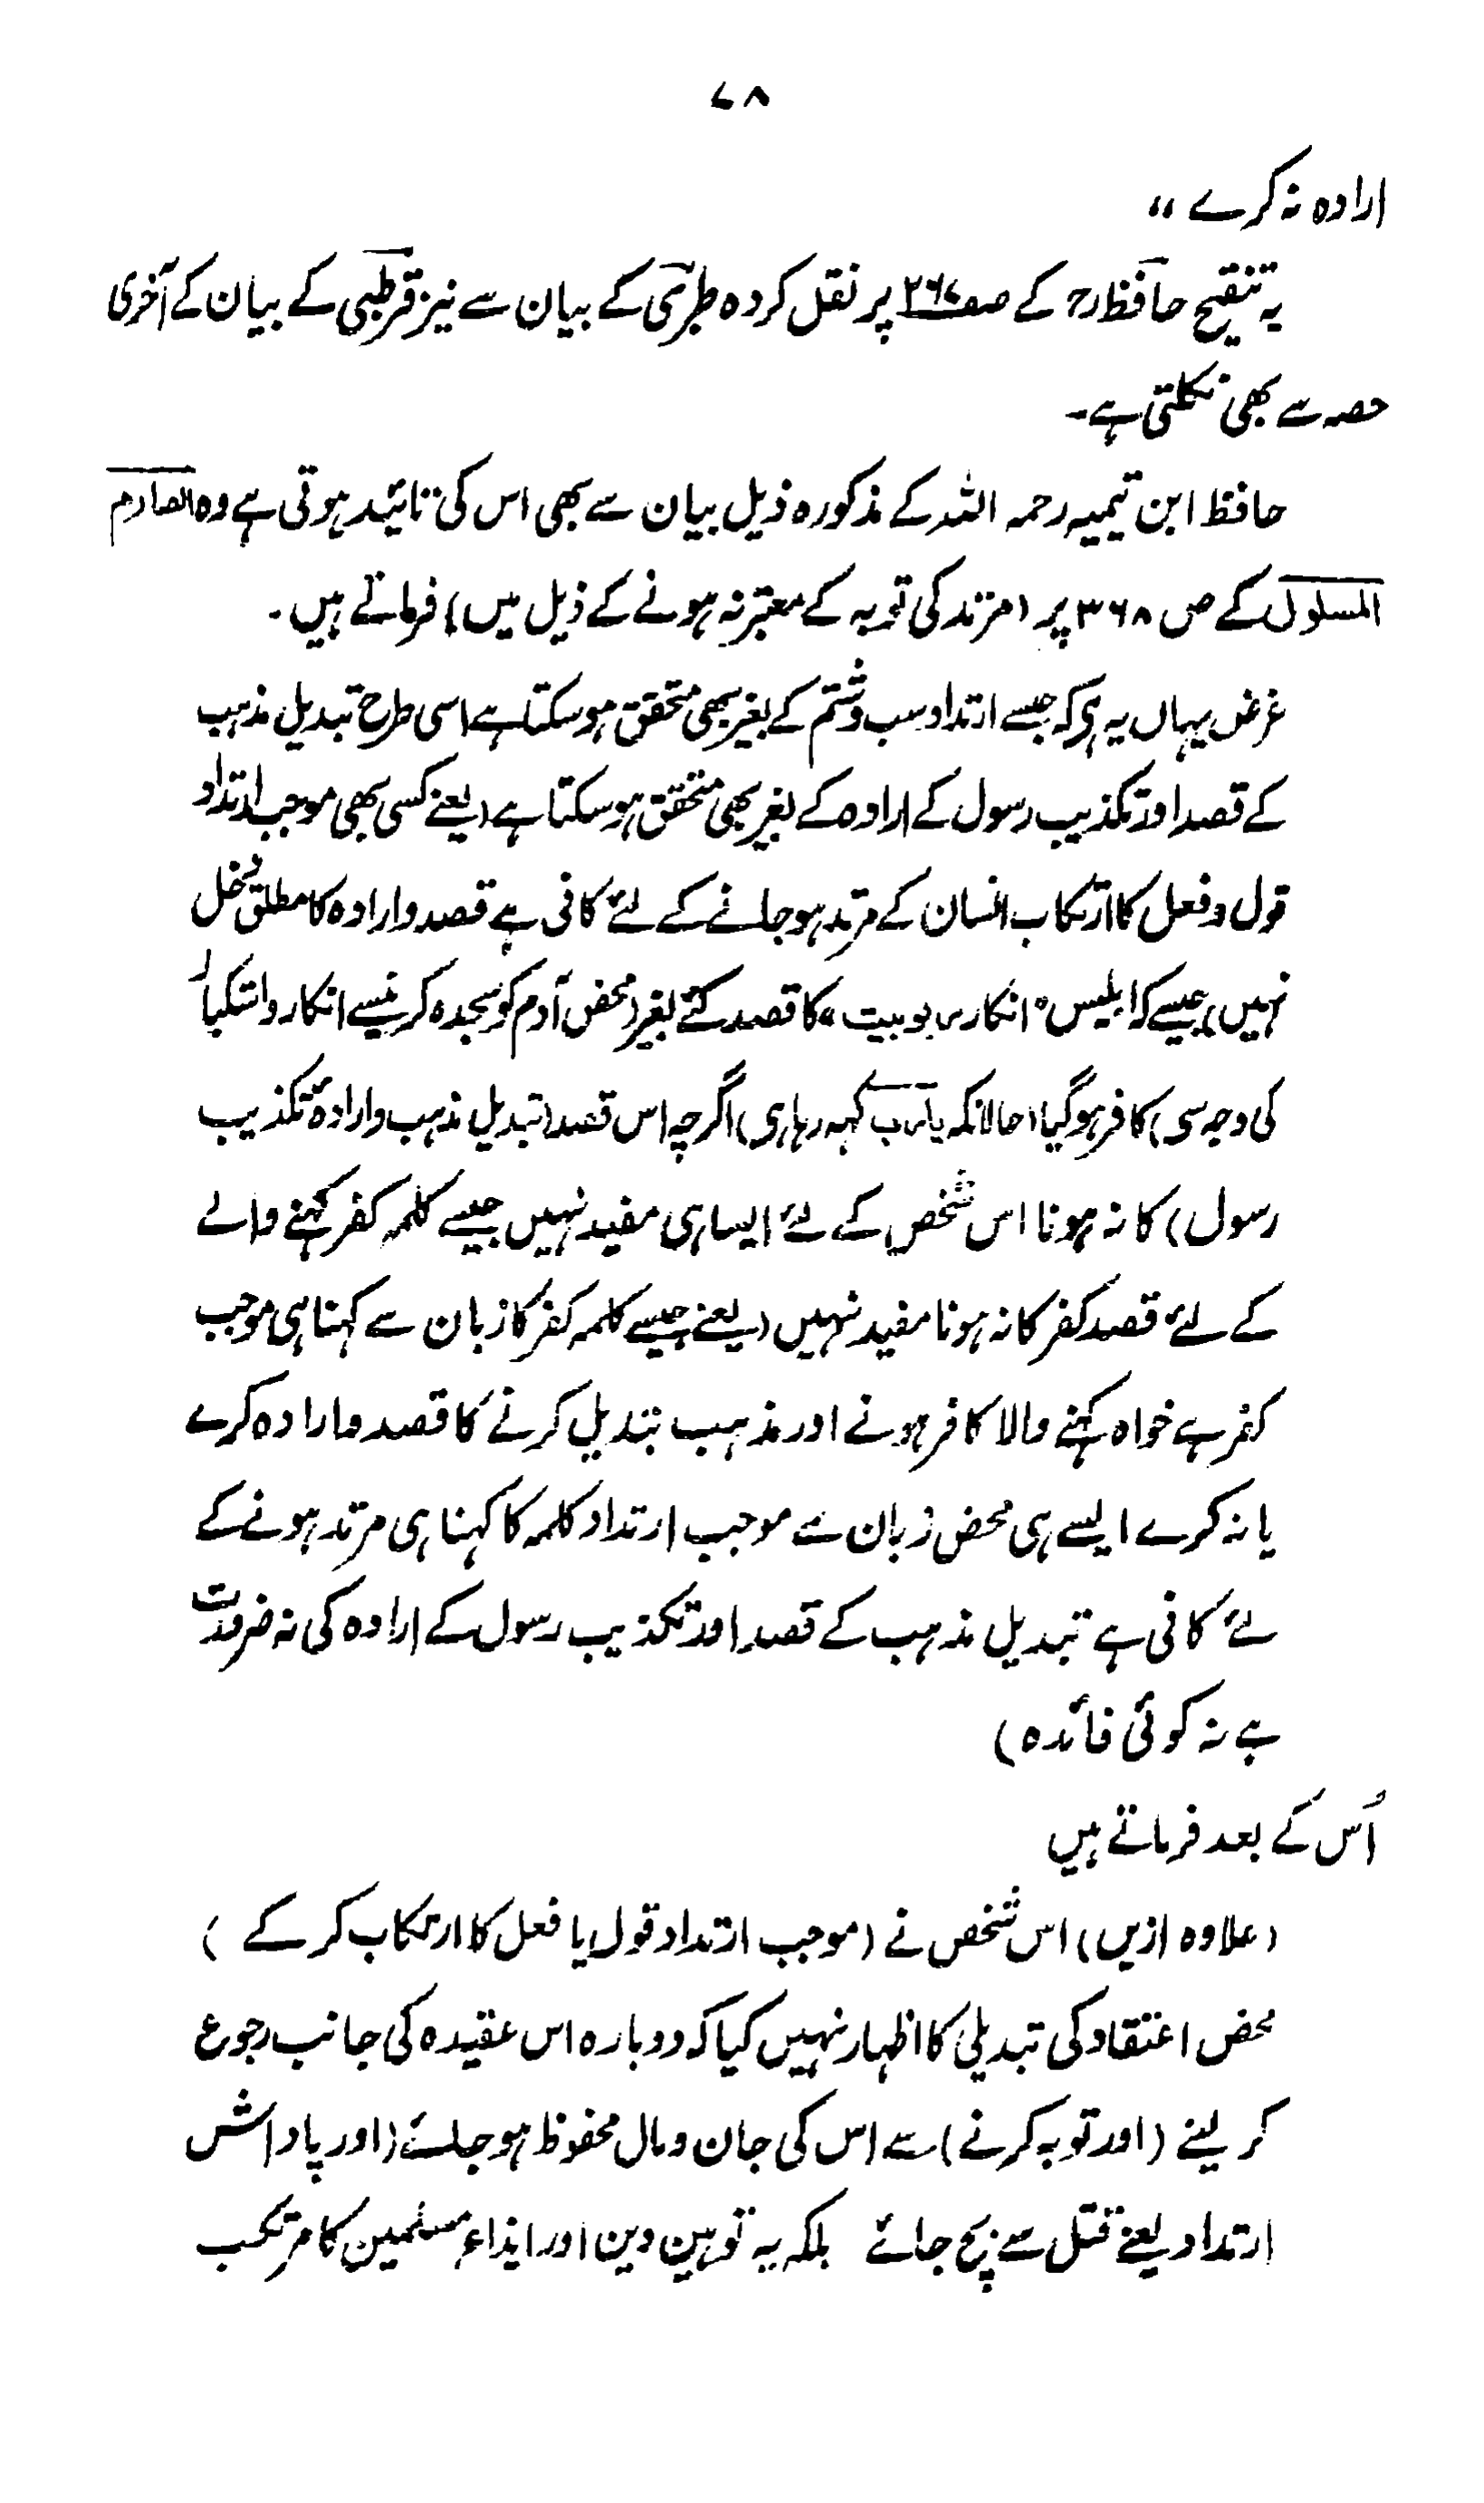 ۷۸
ارادہ نہ کرے ،،
یہ تنقیح حافظ رح کے صہ ۲۶۷ پر نقل کردہ طبری کے بیان سے نیز قرطبی کے بیان کے آخری
حصہ سے بھی نکلتی ہے۔
حافظ ابن تیمیہ رحمہ اللہ کے مذکورہ ذیل بیان سے بھی اس کی تائید ہوتی ہے وہ الصارم
المسلول کے ص ۳۶۸ پر (مرتد کی توبہ کے معتبر نہ ہونے کے ذیل میں) فرماتے ہیں۔
غرض یہاں یہ ہی کہ جیسے ارتداد سب و شتم کے بغیر بھی متحقق ہو سکتا ہے اسی طرح تبدیل مذہب
کے قصد اور تکذیب رسول کے ارادہ کے بغیر بھی متحقق ہو سکتا ہے (یعنے کسی بھی موجب ارتداد
قول و فعل کا ارتکاب انسان کے مرتد ہو جانے کے لئے کافی ہے قصد و ارادہ کا مطلق دخل
نہیں) جیسے کہ ابلیس "انکار ربوبیت" کا قصد کئے بغیر (محض آدم کو سجدہ کرنیسے انکار و استکبار
کی وجہ سی) کافر ہو گیا (حالانکہ یارب کہہ رہا ہی) اگرچہ اس قصد (تبدیل مذہب و ارادۂ تکذیب
رسول) کا نہ ہونا اس شخص کے لئے ایسا ہی مفید نہیں جیسے کلمہ کفر کہنے والے
کے لئے قصد کفر کا نہ ہونا مفید نہیں (یعنے جیسے کلمہ کفر کا زبان سے کہنا ہی موجب
کفر ہے خواہ کہنے والا کافر ہونے اور مذہب بتدیل کرنے کا قصد و ارادہ کرے
یا نہ کرے ایسے ہی محض زبان سے موجب ارتداد کلمہ کا کہنا ہی مرتد ہونے کے
لئے کافی ہے تبدیل مذہب کے قصد اور تکذیب رسول کے ارادہ کی نہ ضرورت
ہے نہ کوئی فائدہ)
اُس کے بعد فرماتے ہیں
(علاوہ ازیں) اس شخص نے (موجب ارتداد قول یا فعل کا ارتکاب کر کے)
محض اعتقاد کی تبدیلی کا اظہار نہیں کیا کہ دوبارہ اس عقیدہ کی جانب رجوع
کر لینے (اور توبہ کرنے) سے اس کی جان و مال محفوظ ہو جائے (اور پاداش
ارتداد یعنے قتل سے بچ جائے بلکہ یہ توہین دین اور ایذاء مسلمین کا مرتکب